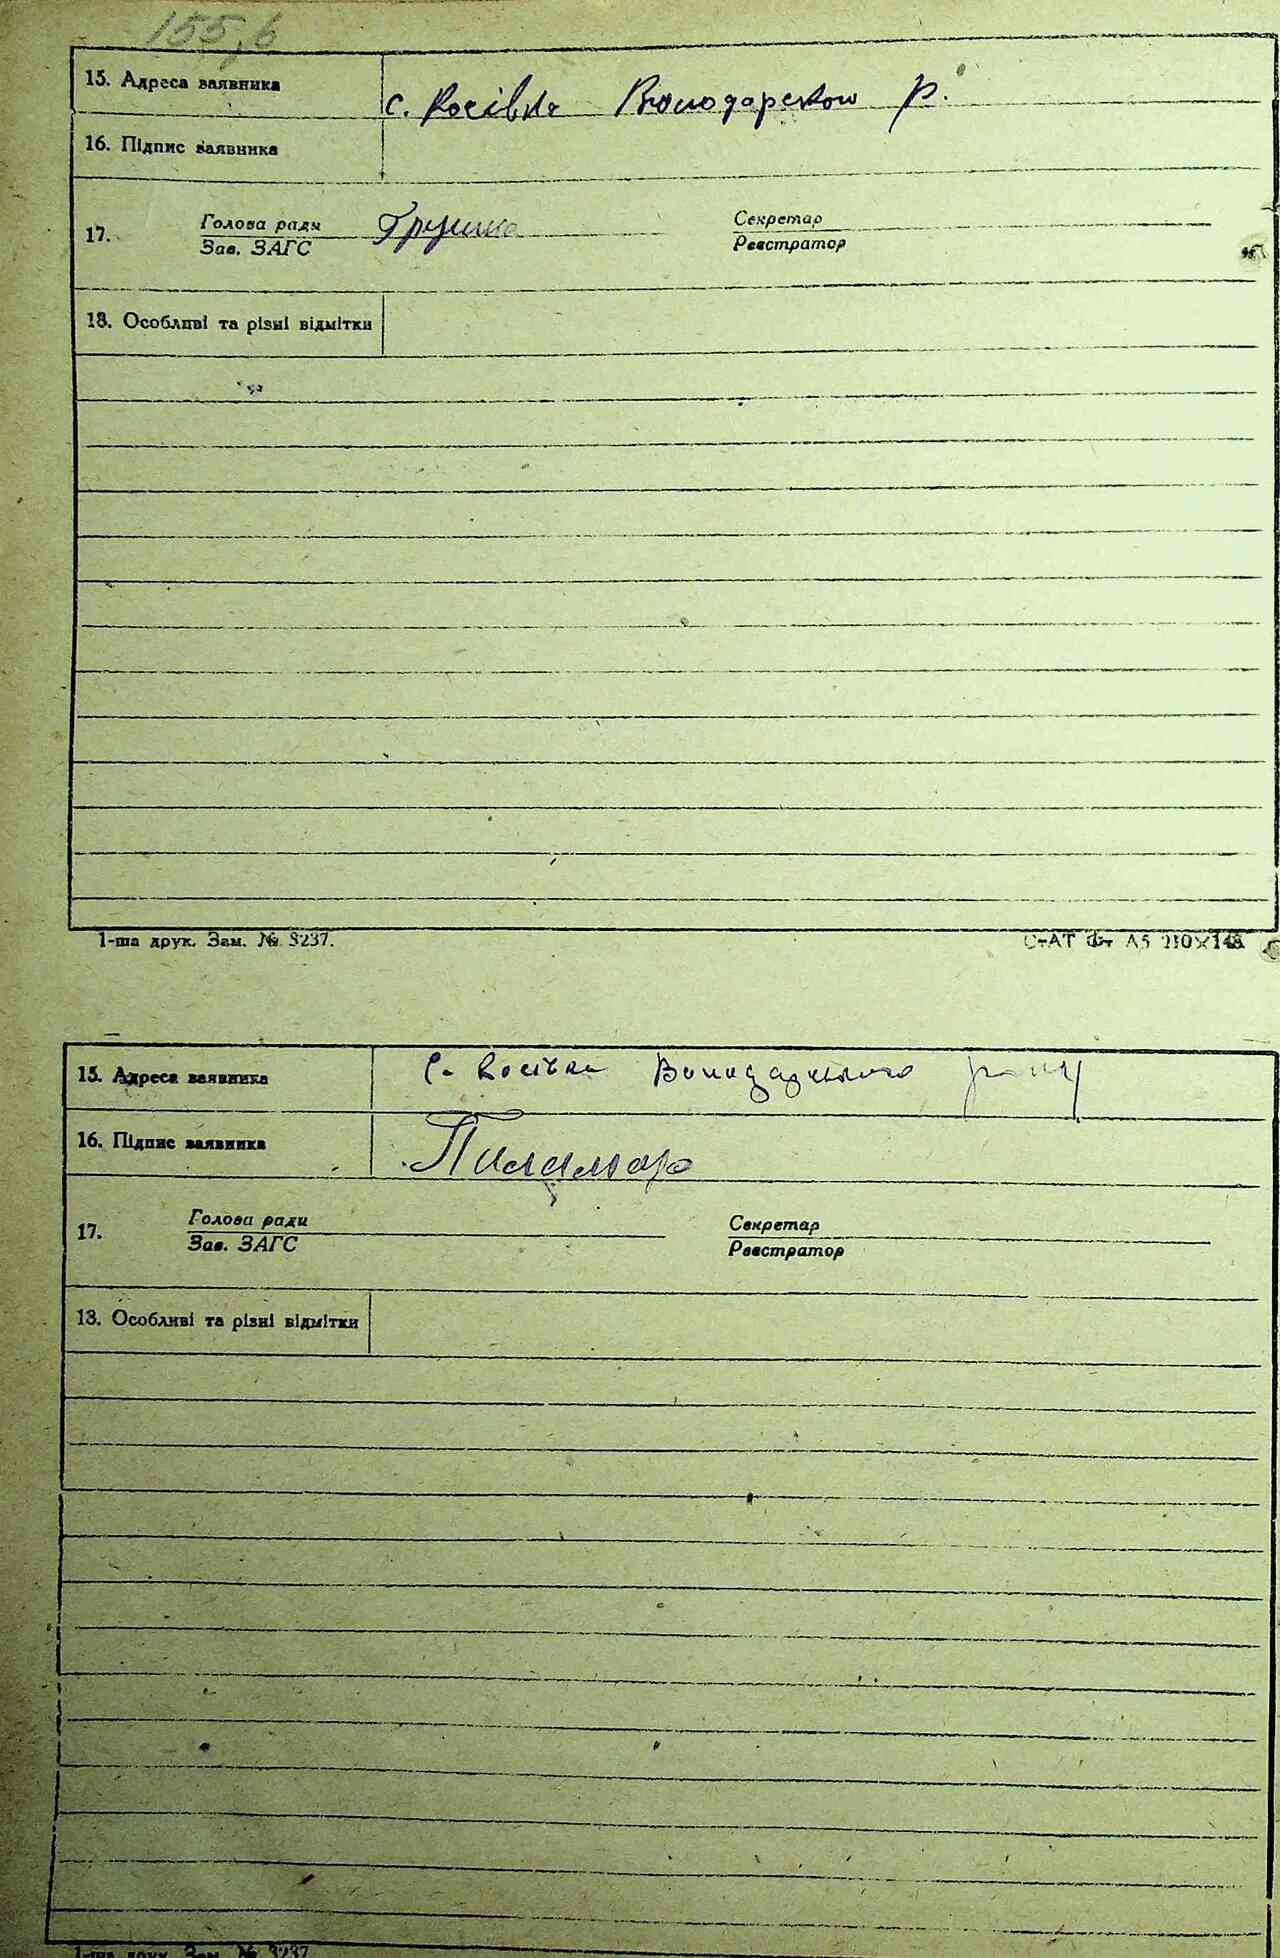 155,6
15. Адреса заявника с. Косівка Володарського р.
16. Підпис заявника
17. Голова ради Грушко Секретар
Зав. ЗАГС Реєстратор
18. Особливі та різні відмітки
1-ша друк. Зам. № 3237. СтАТ Фт А5 210×148
15. Адреса заявника С. Косівка Володарського р-ну
16. Підпис заявника
17. Голова ради Секретар
Зав. ЗАГС Реєстратор
18. Особливі та різні відмітки
1-ша друк. Зам. № 3237